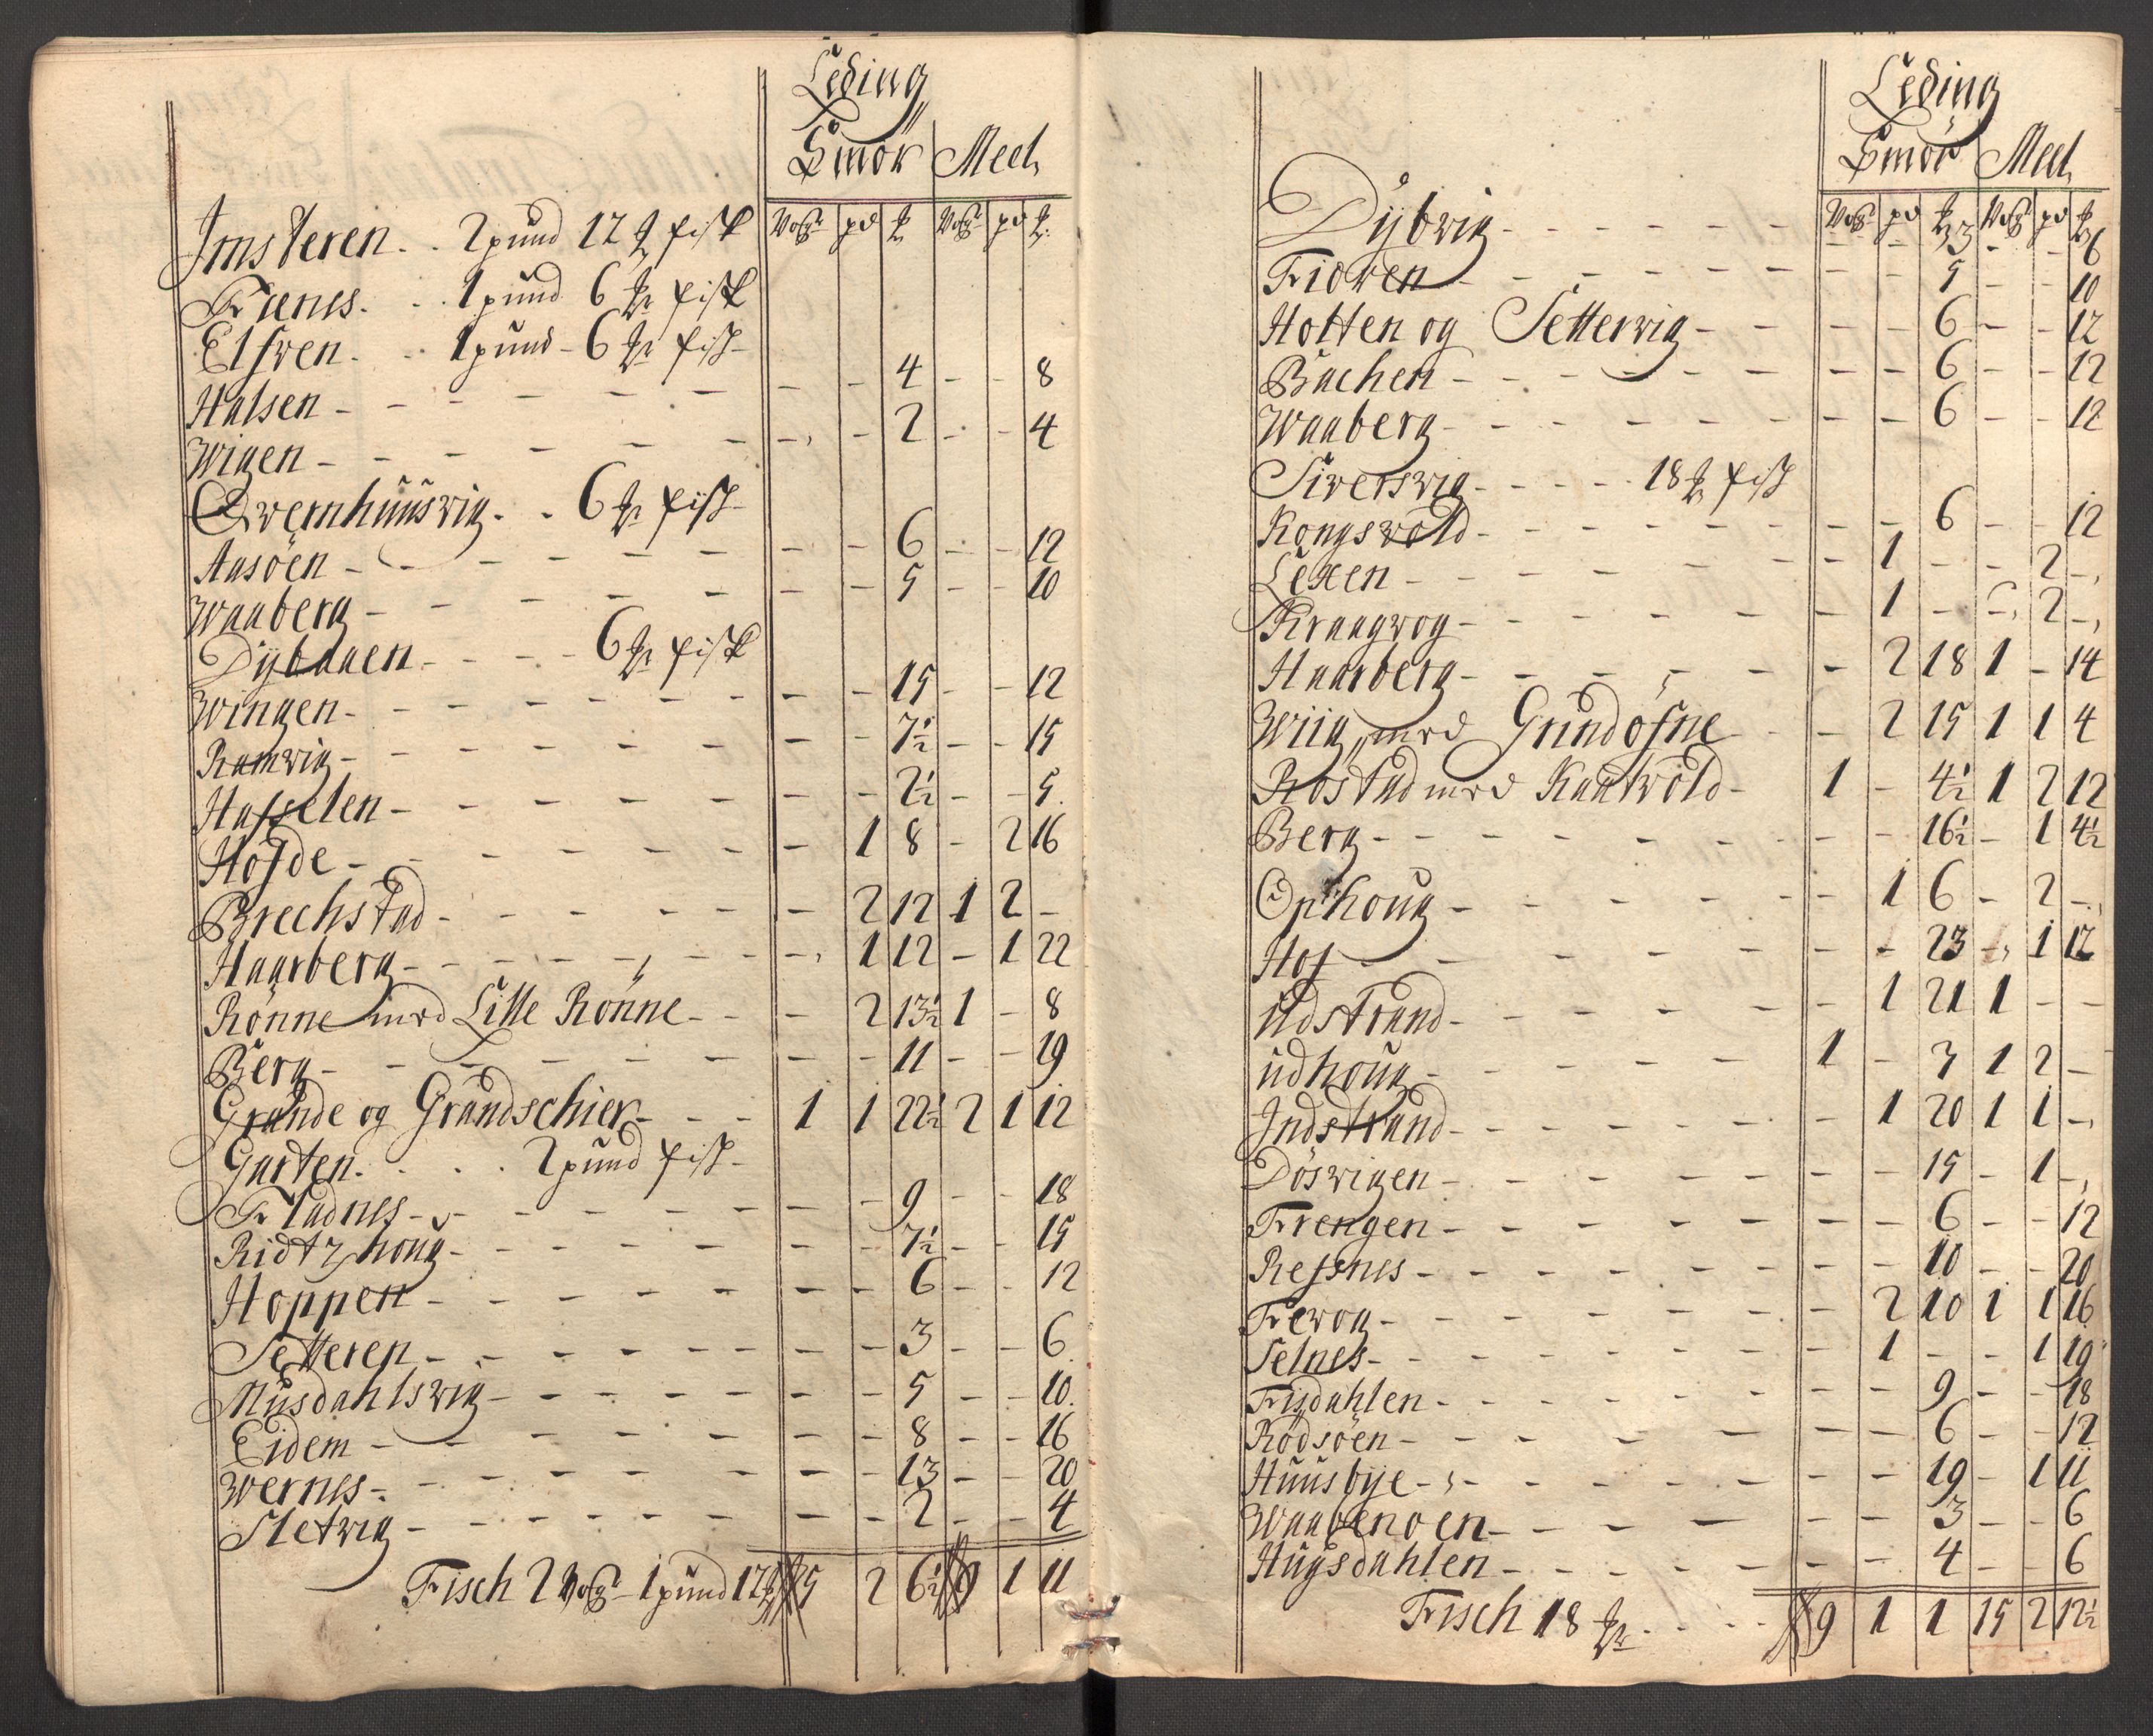 Leding
Smör Meel
Vog pd ℔ Vog pd ℔
Imsteren . . 2 pund 12 ℔ fisk
Frenes . . 1 pund 6 ℔ fisk
Elfven . . 1 pund - 6 ℔ fisk
Halsen - - - 4 - - 8
Wigen - - - 2 - - 4
Qvernhuusvig . . 6 ℔ fisk
Aasöen - - - 6 - - 12
Waaberg - - - 5 - - 10
Dybdaen - - - 6 ℔ fisk
Wingen - - - 15 - - 12
Ramvig - - - 7½ - - 15
Hasselen - - - 2½ - - 5
Höfde - - 1 8 - 2 16
Brechstad - - 2 12 1 2 -
Haarberg - - 1 12 - 1 22
Rönne med Litle Rönne - - 2 13½ 1 - 8
Berg - - - 11 - - 19
Grande og Grandschier - 1 1 22½ 2 1 12
Garten . . . 2 pund fisk
Fladnes - - - 9 - - 18
Ridtzhoug - - - 7½ - - 15
Hoppen - - - 6 - - 12
Setteren - - - 3 - - 6
Musdahlsvig - - - 5 - - 10
Eidem - - - 8 - - 16
Wernes - - - 13 - - 20
Sletvig - - - 2 - - 4
Fisch 2 Vog - 1 pund 12 ℔ 5 2 6½ 9 1 11
Leding
Smör Meel
Vog pd ℔ Vog pd ℔
Dybvig - - - 3 - - 6
Fioren - - - 5 - - 10
Holten og Settervig - - - 6 - - 12
Bachen - - - 6 - - 12
Waaberg - - - 6 - - 12
Siversvig - - - 18 ℔ fisk
Kongsvold - - - 6 - - 12
Lexen - - 1 - - 2 -
Kraagvog - - 1 - - 2 -
Haarberg - - 2 18 1 - 14
Wiig med Grundöfne - - 2 15 1 1 4
Röstad med Kaatvold - 1 - 4½ 1 2 12
Berg - - - 16½ - 1 4½
Ophoug - - 1 6 - 2 -
Hof - - - 23 - 1 12
Udstrand - - 1 21 1 - -
Udhoug - 1 - 3 1 2 -
Indstrand - - 1 20 1 1 -
Dösvigen - - - 15 - 1 -
Frengen - - - 6 - - 12
Ressnes - - - 10 - - 20
Fevog - - 2 10 1 1 16
Selnes - - 1 - - 1 19
Frisdahlen - - - 9 - - 18
Rödsöen - - - 6 - - 12
Huusbye - - - 19 - 1 11
Waabenoen - - - 3 - - 6
Hugsdahlen - - - 4 - - 6
Fisch 18 ℔ . . . 9 1 1 15 2 12½